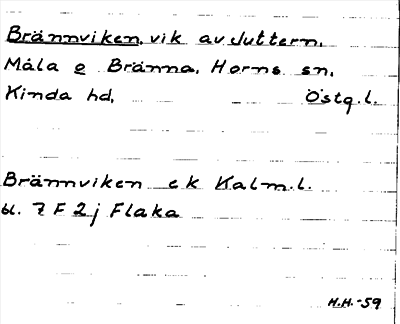 Brännviken, vik av Juttern,
Måla o Bränna, Horns sn,
Kinda hd, Östg.l.
Brännviken ek Kalm.l.
bl. 7 F 2 j Flaka
H.H.-59